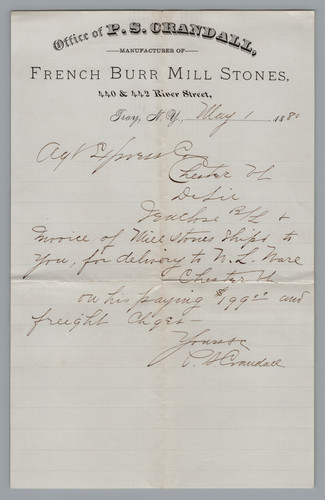 Office of P. S. CRANDALL,
MANUFACTURER OF
FRENCH BURR MILL STONES,
440 & 442 River Street,
Troy, N.Y., May 1 1880
Agt Express Co
Chester Vt
D Sir
I enclose B/L &
Invoice of Mill stones Ships to
You, for delivery to N. L. Ware
Chester Vt
on his paying $199.00 and
freight Chges
Yours &c
P. S. Crandall